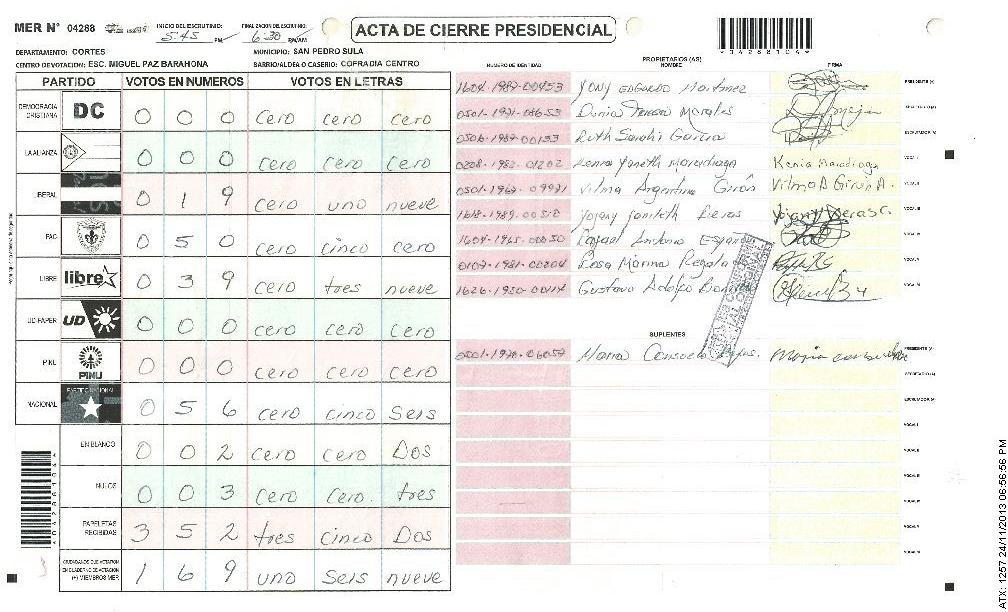 MER N° 04288 INICIO DEL ESCRUTINIO: 5:45 PM FINALIZACION DEL ESCRUTINIO: 6:30 PM/AM
ACTA DE CIERRE PRESIDENCIAL
*04288104*
DEPARTAMENTO: CORTES MUNICIPIO: SAN PEDRO SULA
CENTRO DE VOTACION: ESC. MIGUEL PAZ BARAHONA BARRIO/ALDEA O CASERIO: COFRADIA CENTRO
PARTIDO VOTOS EN NUMEROS VOTOS EN LETRAS
DEMOCRACIA CRISTIANA DC 0 0 0 cero cero cero
LA ALIANZA 0 0 0 cero cero cero
LIBERAL 0 1 9 cero uno nueve
PAC 0 5 0 cero cinco cero
LIBRE libre 0 3 9 cero tres nueve
UD-FAPER UD 0 0 0 cero cero cero
PINU PINU 0 0 0 cero cero cero
NACIONAL PARTIDO NACIONAL 0 5 6 cero cinco Seis
EN BLANCO 0 0 2 cero cero Dos
NULOS 0 0 3 cero cero. tres
PAPELETAS RECIBIDAS 3 5 2 tres cinco Dos
CIUDADANOS QUE VOTARON EN CUADERNO DE VOTACION (+) MIEMBROS MER 1 6 9 uno Seis nueve
PROPIETARIOS (AS)
NUMERO DE IDENTIDAD NOMBRE FIRMA
1604-1987-00453 Yony Edgardo Martinez PRESIDENTE (A)
0501-1971-08653 Dunia Teresa Morales SECRETARIO (A)
0506-1987-00133 Ruth Sarahi Garcia ESCRUTADOR (A)
0208-1982-01202 Kenia Yaneth Maradiaga Kenia Maradiaga VOCAL I
0501-1967-09971 Vilma Argentina Girón Vilma A Girón A. VOCAL II
1618-1989-00512 Yojany Janileth VOCAL III
1604-1965-00050 Rafael Antonio VOCAL IV
0107-1981-00804 Rosa Marina Regalado VOCAL V
1626-1950-00114 Gustavo Adolfo VOCAL VI
SUPLENTES
0501-1978-06057 Maria Consuelo Maria consuelo PRESIDENTE (A)
SECRETARIO (A)
ESCRUTADOR (A)
VOCAL I
VOCAL II
VOCAL III
VOCAL IV
VOCAL V
VOCAL VI
ATX: 1257 24/11/2013 06:56:56 PM